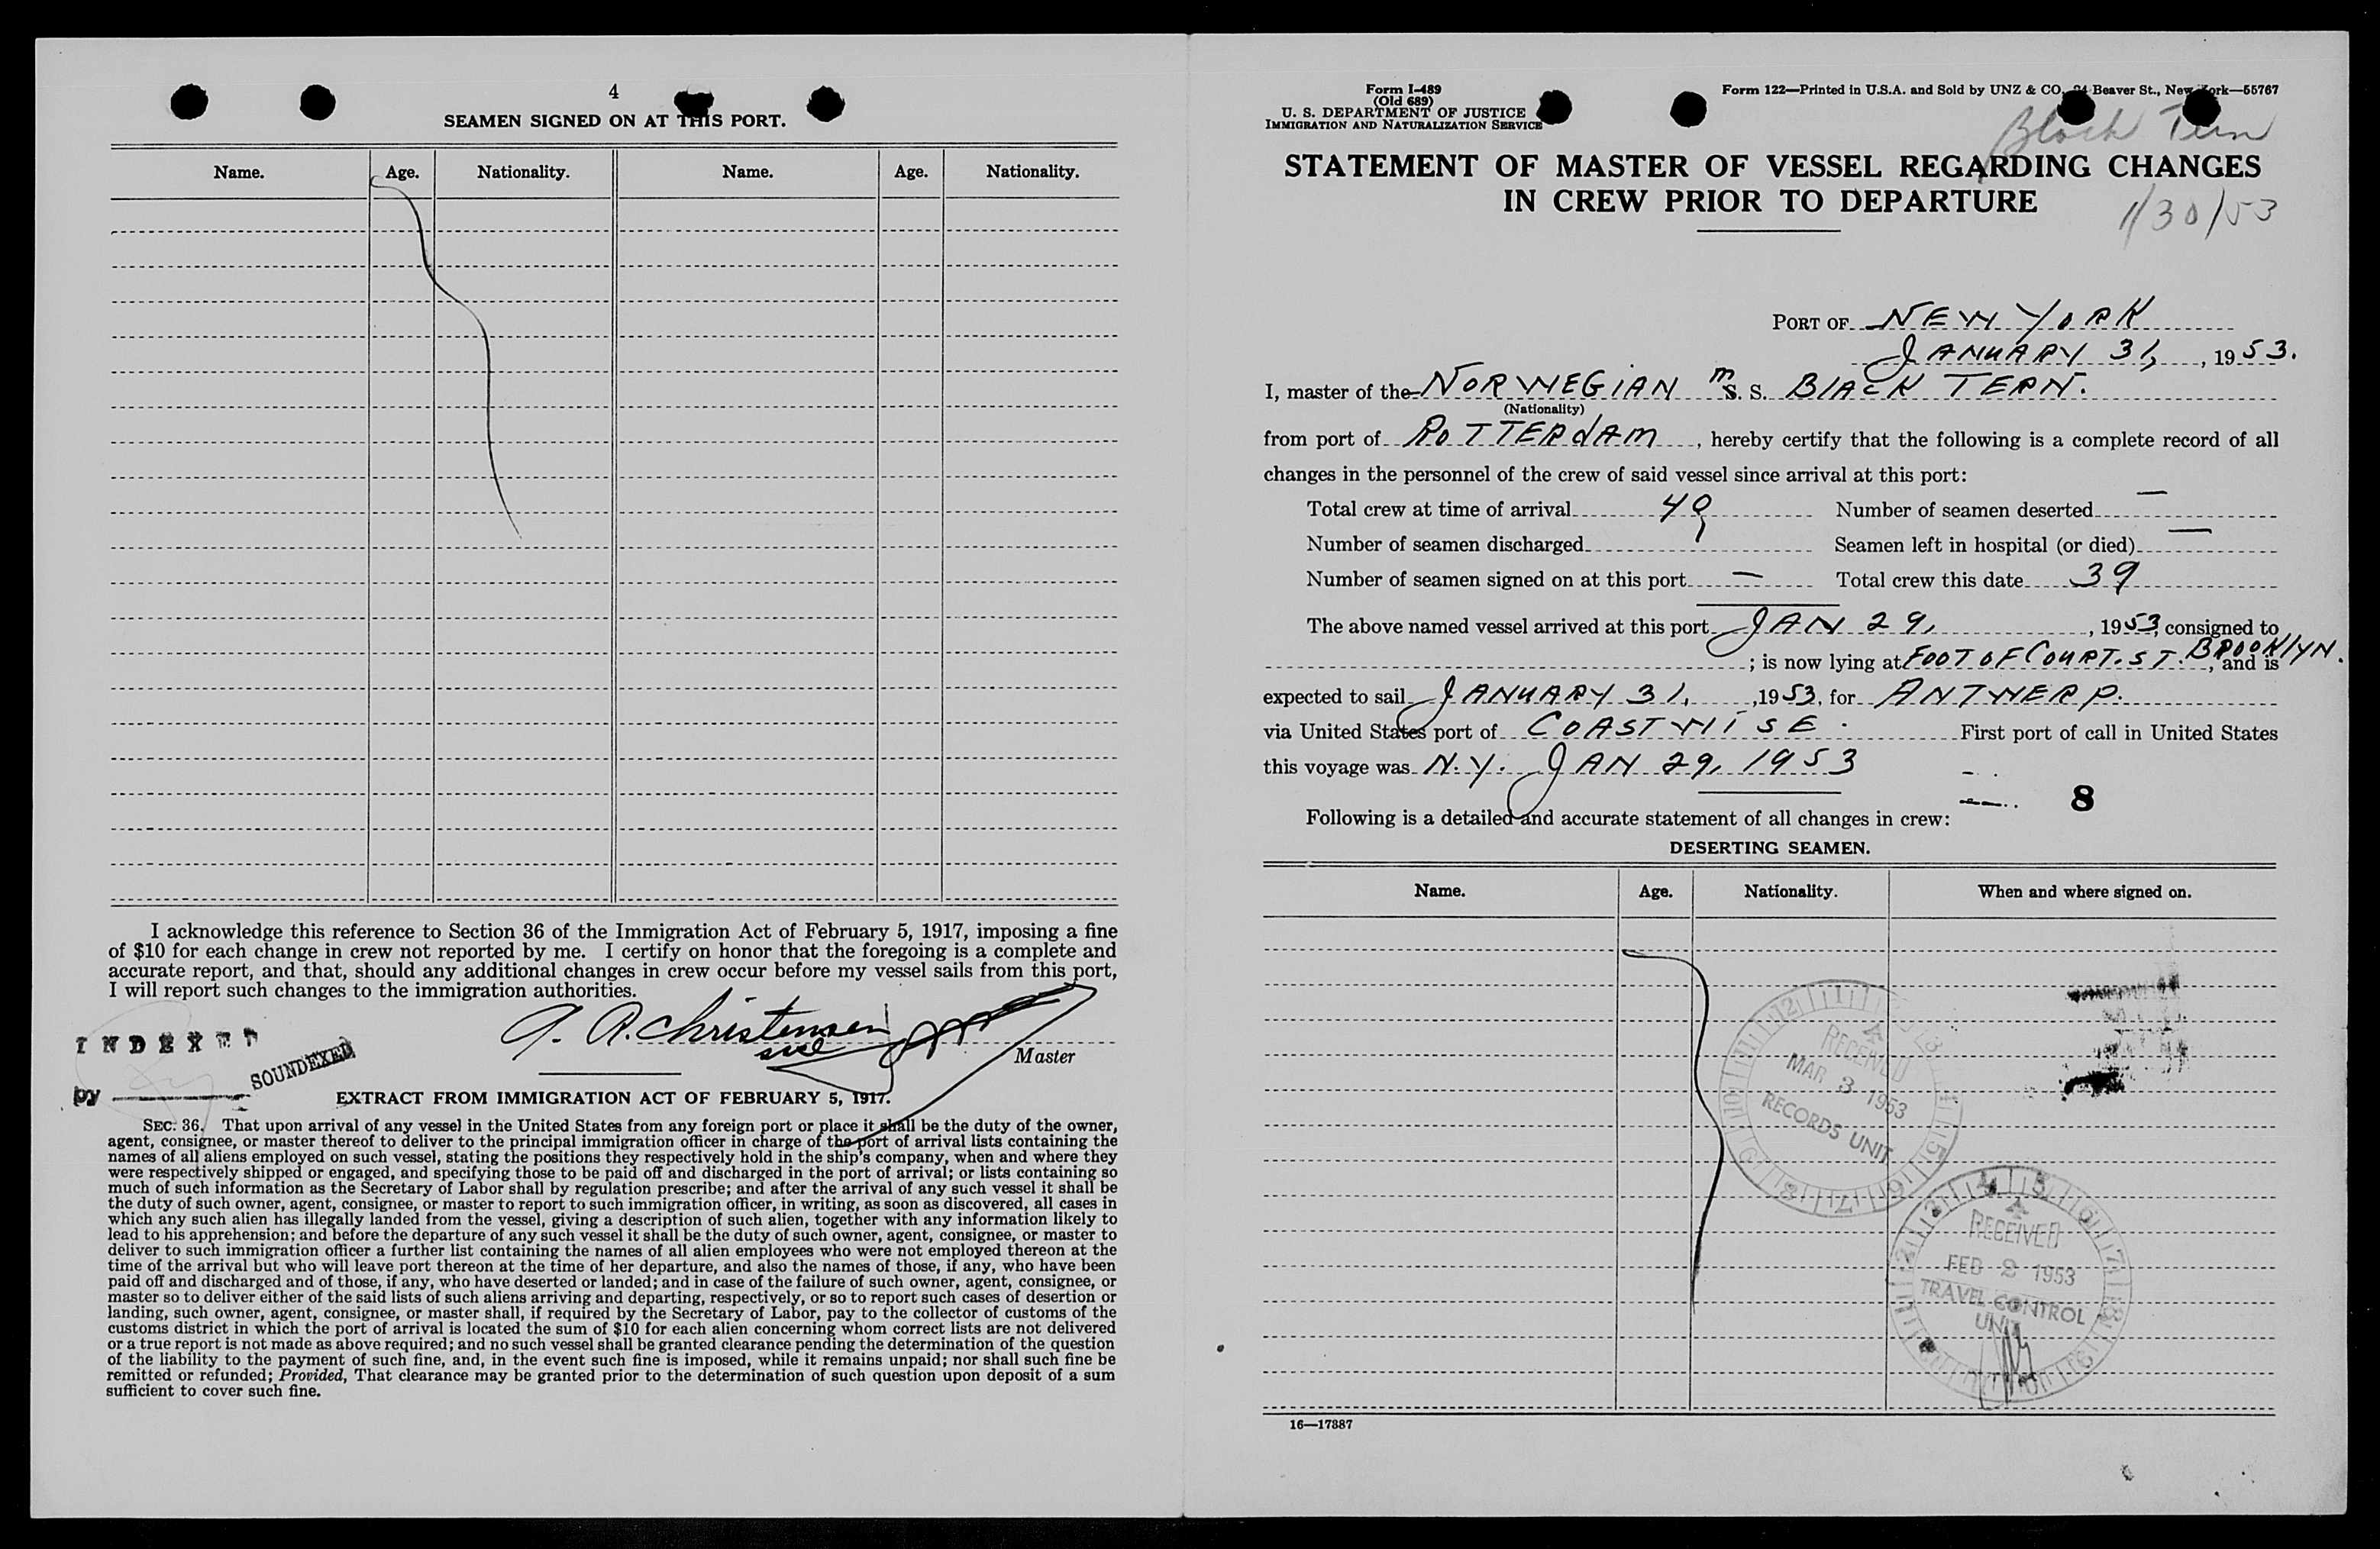 4
SEAMEN SIGNED ON AT THIS PORT.
Name. Age. Nationality. Name. Age. Nationality.
I acknowledge this reference to Section 36 of the Immigration Act of February 5, 1917, imposing a fine
of $10 for each change in crew not reported by me. I certify on honor that the foregoing is a complete and
accurate report, and that, should any additional changes in crew occur before my vessel sails from this port,
I will report such changes to the immigration authorities.
A. R. Christensen
Master
INDEXED
by
SOUNDEXED
EXTRACT FROM IMMIGRATION ACT OF FEBRUARY 5, 1917.
SEC. 36. That upon arrival of any vessel in the United States from any foreign port or place it shall be the duty of the owner,
agent, consignee, or master thereof to deliver to the principal immigration officer in charge of the port of arrival lists containing the
names of all aliens employed on such vessel, stating the positions they respectively hold in the ship's company, when and where they
were respectively shipped or engaged, and specifying those to be paid off and discharged in the port of arrival; or lists containing so
much of such information as the Secretary of Labor shall by regulation prescribe; and after the arrival of any such vessel it shall be
the duty of such owner, agent, consignee, or master to report to such immigration officer, in writing, as soon as discovered, all cases in
which any such alien has illegally landed from the vessel, giving a description of such alien, together with any information likely to
lead to his apprehension; and before the departure of any such vessel it shall be the duty of such owner, agent, consignee, or master to
deliver to such immigration officer a further list containing the names of all alien employees who were not employed thereon at the
time of the arrival but who will leave port thereon at the time of her departure, and also the names of those, if any, who have been
paid off and discharged and of those, if any, who have deserted or landed; and in case of the failure of such owner, agent, consignee, or
master so to deliver either of the said lists of such aliens arriving and departing, respectively, or so to report such cases of desertion or
landing, such owner, agent, consignee, or master shall, if required by the Secretary of Labor, pay to the collector of customs of the
customs district in which the port of arrival is located the sum of $10 for each alien concerning whom correct lists are not delivered
or a true report is not made as above required; and no such vessel shall be granted clearance pending the determination of the question
of the liability to the payment of such fine, and, in the event such fine is imposed, while it remains unpaid; nor shall such fine be
remitted or refunded; Provided, That clearance may be granted prior to the determination of such question upon deposit of a sum
sufficient to cover such fine.
Form I-489
(Old 689)
U. S. DEPARTMENT OF JUSTICE
IMMIGRATION AND NATURALIZATION SERVICE
Form 122—Printed in U.S.A. and Sold by UNZ & CO. 24 Beaver St., New York—55767
Black Tern
STATEMENT OF MASTER OF VESSEL REGARDING CHANGES
IN CREW PRIOR TO DEPARTURE
1/30/53
PORT OF NEW YORK
JANUARY 31, , 1953.
I, master of the NORWEGIAN M S. S. BLACK TERN.
(Nationality)
from port of ROTTERDAM, hereby certify that the following is a complete record of all
changes in the personnel of the crew of said vessel since arrival at this port:
Total crew at time of arrival 40 Number of seamen deserted —
Number of seamen discharged 1 Seamen left in hospital (or died) —
Number of seamen signed on at this port — Total crew this date 39
The above named vessel arrived at this port JAN 29, , 1953, consigned to
; is now lying at FOOT OF COURT. ST. BROOKLYN. , and is
expected to sail JANUARY 31, ,1953, for ANTWERP.
via United States port of COASTWISE. First port of call in United States
this voyage was N.Y. JAN 29, 1953
8
Following is a detailed and accurate statement of all changes in crew:
DESERTING SEAMEN.
Name. Age. Nationality. When and where signed on.
RECEIVED
MAR 3 1953
RECORDS UNIT
RECEIVED
FEB 2 1953
TRAVEL CONTROL
UNIT
16—17887